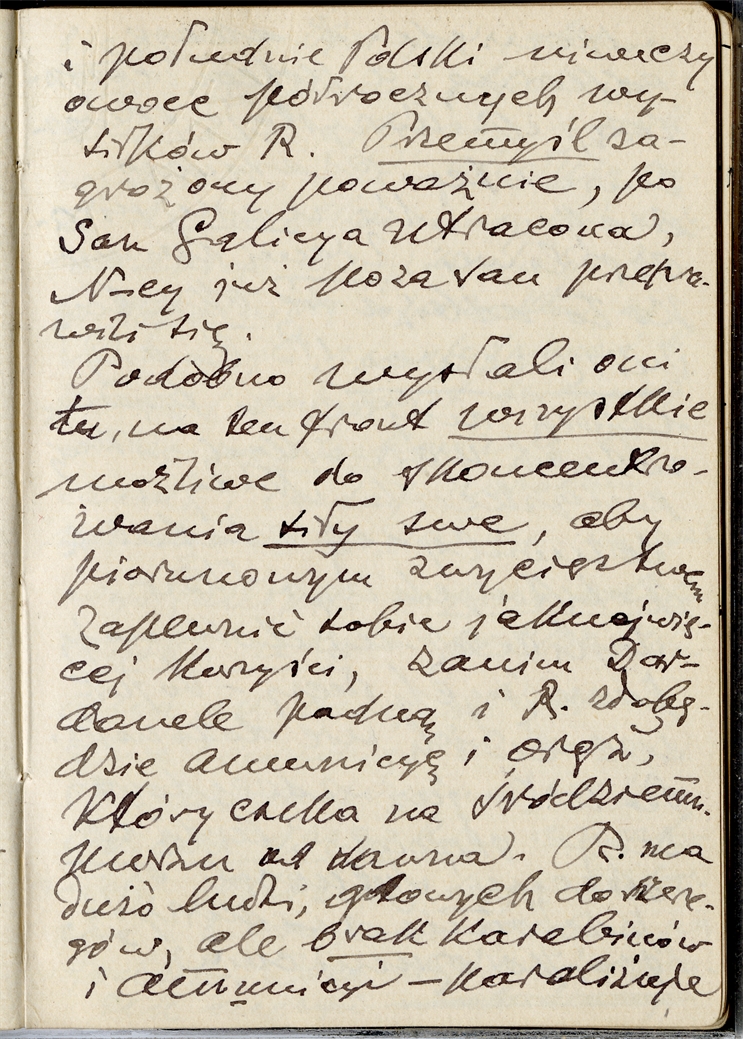 i południe Polski niweczy
owoce półrocznych wy-
siłków R. Przemyśl za-
grożony poważnie, po
San Galicya utracona,
N-cy już poza San przepra-
wili się.
Podobno wysłali oni
tu, na ten front wszystkie
możliwe do skoncentro-
wania siły swe, aby
piorunowym zwycięstwem
zapewnić sobie jaknajwię-
cej korzyści, zanim Dar-
danele padną i R. zdobę-
dzie amunicyę i oręż,
który czeka na śródziemn.
morzu od dawna. R. ma
dużo ludzi, gotowych do szere-
gów, ale brak karabinów
i amunicyi – paraliżuje